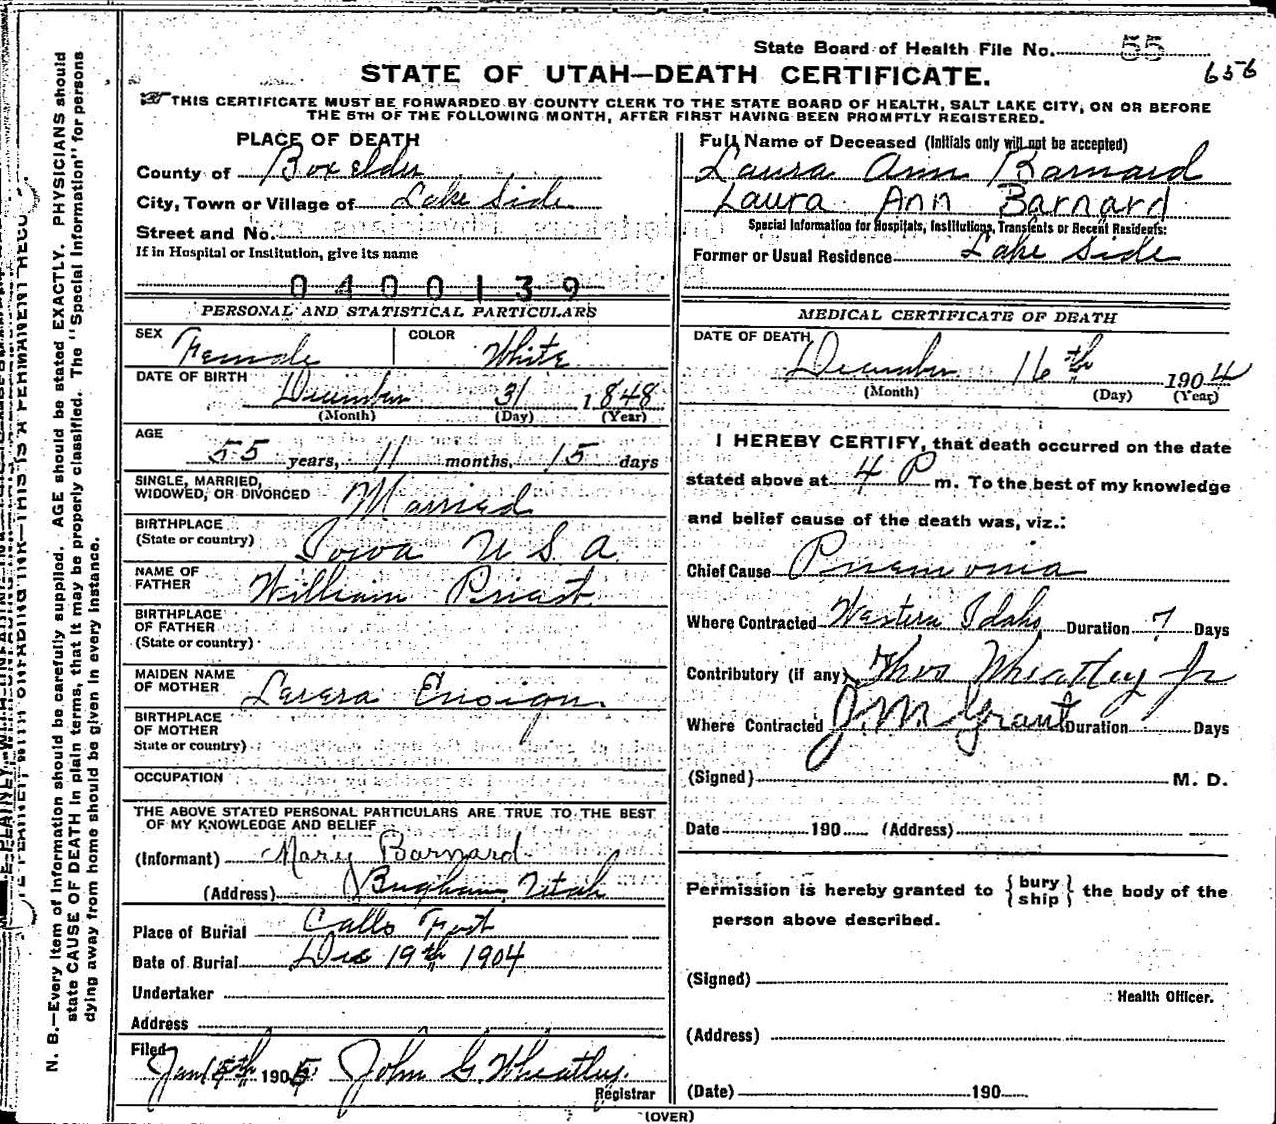 State Board of Health File No. 55
656
STATE OF UTAH—DEATH CERTIFICATE.
THIS CERTIFICATE MUST BE FORWARDED BY COUNTY CLERK TO THE STATE BOARD OF HEALTH, SALT LAKE CITY, ON OR BEFORE
THE 5TH OF THE FOLLOWING MONTH, AFTER FIRST HAVING BEEN PROMPTLY REGISTERED.
PLACE OF DEATH
County of Box elder
City, Town or Village of Lake Side
Street and No.
If in Hospital or Institution, give its name
0400139
Full Name of Deceased (Initials only will not be accepted)
Laura Ann Barnard
Laura Ann Barnard
Special Information for Hospitals, Institutions, Transients or Recent Residents:
Former or Usual Residence Lake Side
PERSONAL AND STATISTICAL PARTICULARS
SEX Female COLOR White
DATE OF BIRTH December 31 1848
(Month) (Day) (Year)
AGE
55 years, 11 months, 15 days
SINGLE, MARRIED,
WIDOWED, OR DIVORCED Married
BIRTHPLACE
(State or country) Iowa U S A
NAME OF
FATHER William Priest
BIRTHPLACE
OF FATHER
(State or country)
MAIDEN NAME
OF MOTHER Ensign
BIRTHPLACE
OF MOTHER
State or country)
OCCUPATION
THE ABOVE STATED PERSONAL PARTICULARS ARE TRUE TO THE BEST
OF MY KNOWLEDGE AND BELIEF
(Informant) Mary Barnard
(Address) Brigham, Utah
Place of Burial Calls Fort
Date of Burial Dec 19th 1904
Undertaker
Address
Filed
Jan 190 5 John G. Wheatley.
Registrar
MEDICAL CERTIFICATE OF DEATH
DATE OF DEATH
December 16th 1904
(Month) (Day) (Year)
I HEREBY CERTIFY, that death occurred on the date
stated above at 4 P m. To the best of my knowledge
and belief cause of the death was, viz.:
Chief Cause Pnemonia
Where Contracted Western Idaho Duration 7 Days
Contributory (if any) Thos Wheatley Jr
Where Contracted J. M. Grant Duration Days
(Signed) M. D.
Date 190 (Address)
Permission is hereby granted to { bury
ship } the body of the
person above described.
(Signed)
Health Officer.
(Address)
(Date) 190
(OVER)
N. B.—Every item of information should be carefully supplied. AGE should be stated EXACTLY. PHYSICIANS should
state CAUSE OF DEATH in plain terms, that it may be properly classified. The "Special Information" for persons
dying away from home should be given in every instance.